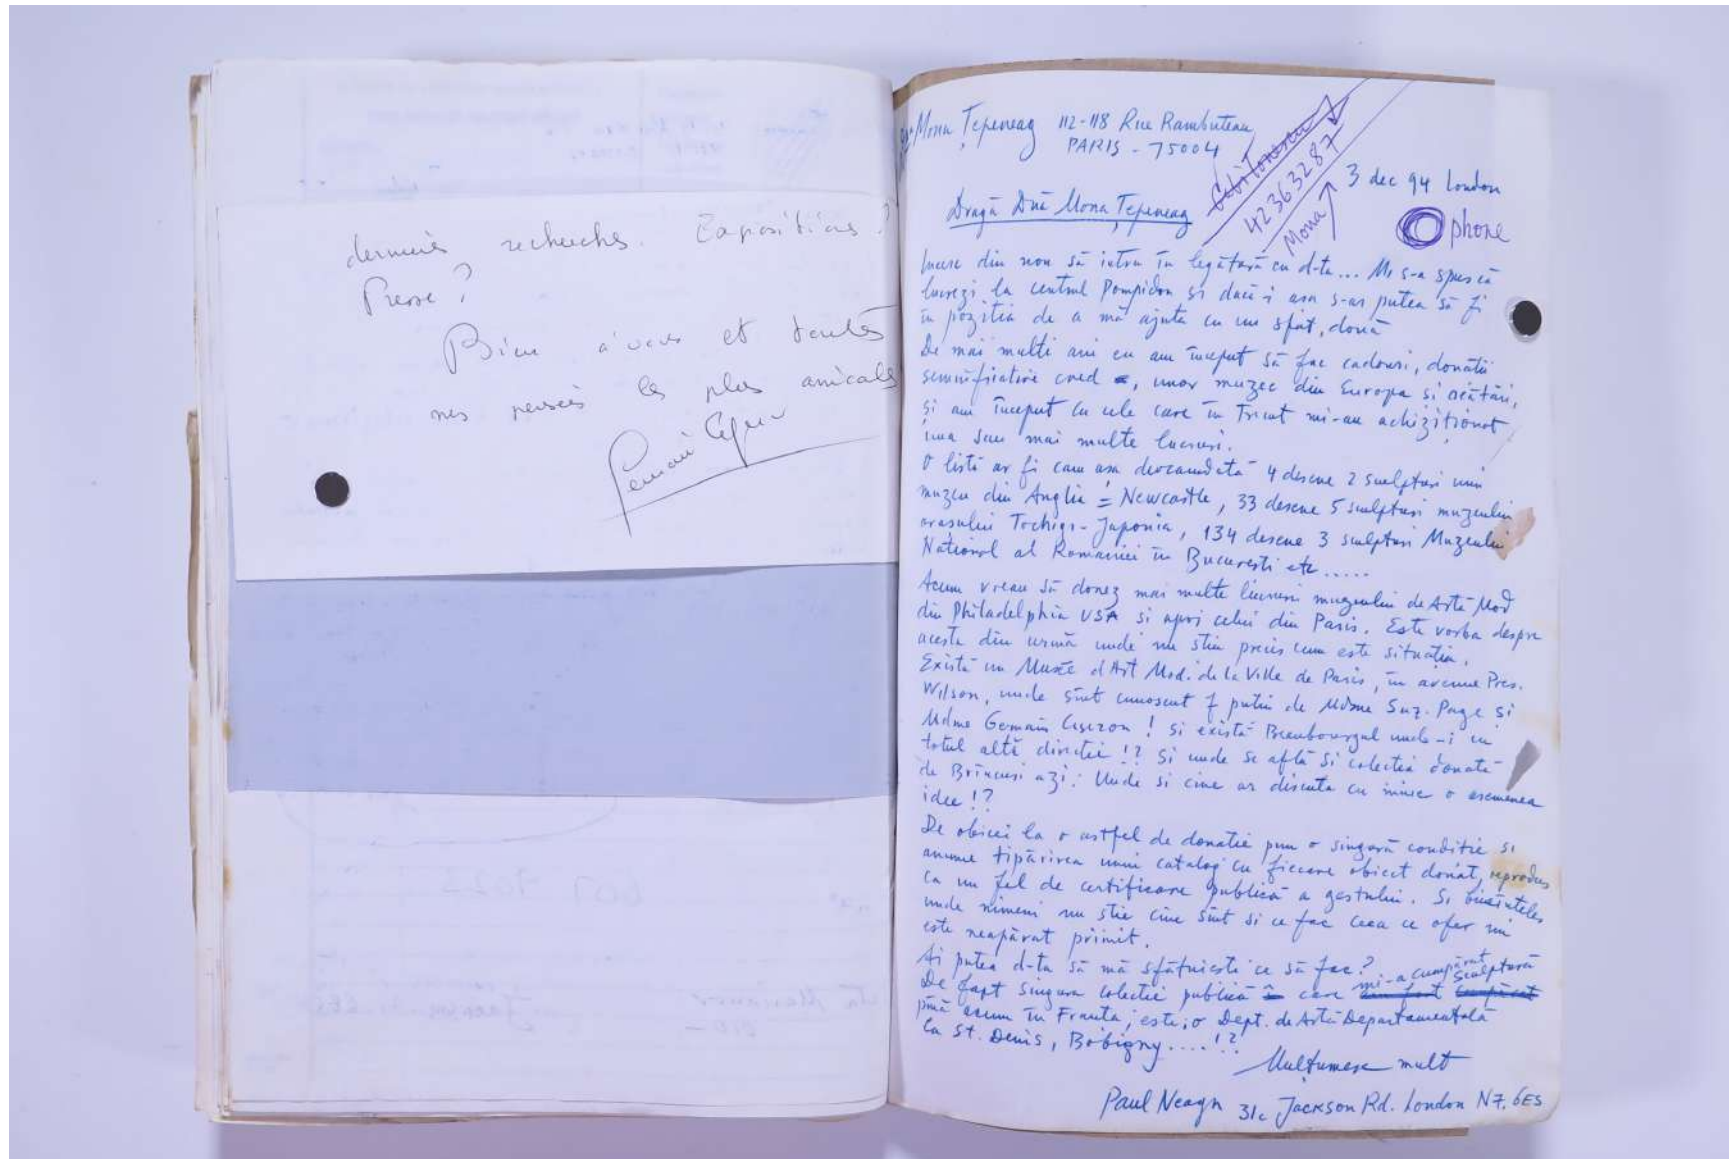 derniers recherches. Expositions?
Presse?
Bien à vous et toutes
mes pensées les plus amicales
Mona Țepeneag 112-118 Rue Rambuteau
PARIS - 75004
42363287
Mona
3 dec 94 London
phone
Dragă Dnă Mona Țepeneag
Încerc din nou să intru în legătură cu d-ta... Mi s-a spus că
lucrezi la centrul Pompidou și dacă-i așa s-ar putea să fi
în poziția de a mă ajuta cu un sfat, două
De mai mulți ani eu am început să fac cadouri, donații
semnificative cred, unor muzee din Europa și aiătări,
și am început cu cele care în trecut mi-au achiziționat
una sau mai multe lucrări.
O listă ar fi cam așa deocamdată 4 desene 2 sculpturi unui
muzeu din Anglia = Newcastle, 33 desene 5 sculpturi muzeului
orașului Tochigi - Japonia, 134 desene 3 sculpturi Muzeului
Național al României în București etc.....
Acum vreau să donez mai multe lucrări muzeului de Artă Mod
din Philadelphia USA și apoi celui din Paris. Este vorba despre
acesta din urmă unde nu știu precis cum este situația.
Există un Musée d'Art Mod. de la Ville de Paris, în avenue Pres.
Wilson, unde sînt cunoscut f puțin de Mdme Suz. Page și
Mdme Germain ! și există Beaubourgul unde-i cu
totul altă direcție !? și unde se află și colecția donată
de Brîncuși azi: Unde și cine ar discuta cu mine o asemenea
idee !?
De obicei la o astfel de donație pun o singură condiție și
anume tipărirea unui catalog cu fiecare obiect donat, reprodus
ca un fel de certificare publică a gestului. Și bineînțeles
unde nimeni nu știe cine sînt și ce fac ceea ce ofer nu
este neapărat primit.
Ai putea d-ta să mă sfătuiești ce să fac?
mi-a cumpărat sculptură
De fapt singura colecție publică care
pînă acum în Franța, este, o Dept. de Artă Departamentală
la St. Denis, Bobigny....!?
Mulțumesc mult
Paul Neagu 31c Jackson Rd. London N7. 6ES